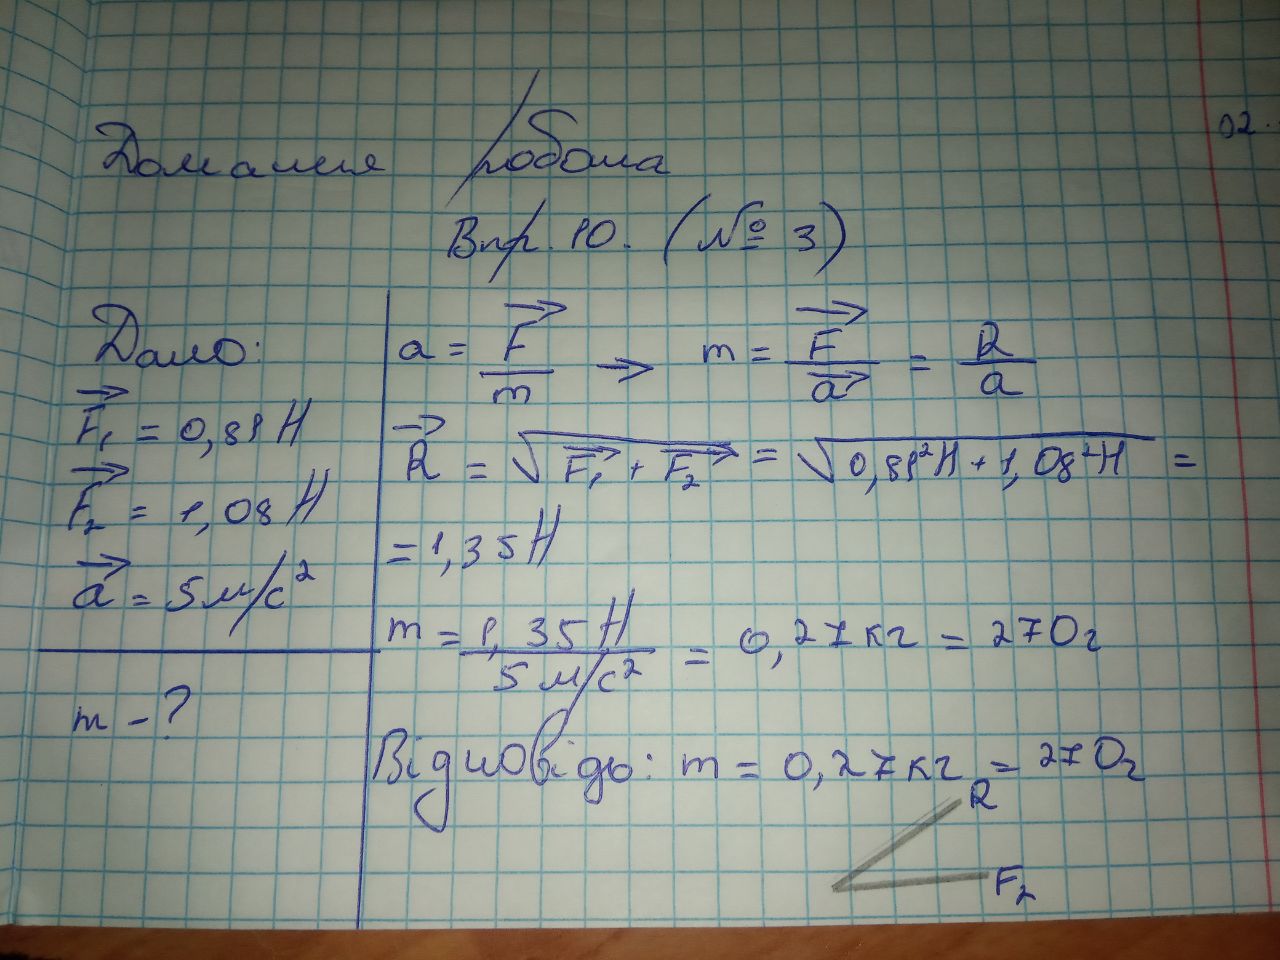 02
Домашня робота
Впр. 10. (№ 3)
Дано:
F₁ = 0,81 Н
F₂ = 1,08 Н
a = 5 м/с²
m - ?
a = F/m → m = F/a = R/a
R = √F₁ + F₂ = √0,81²Н + 1,08²Н =
= 1,35 Н
m = 1,35 Н / 5 м/с² = 0,27 кг = 270 г
Відповідь: m = 0,27 кг = 270 г
R
F₂